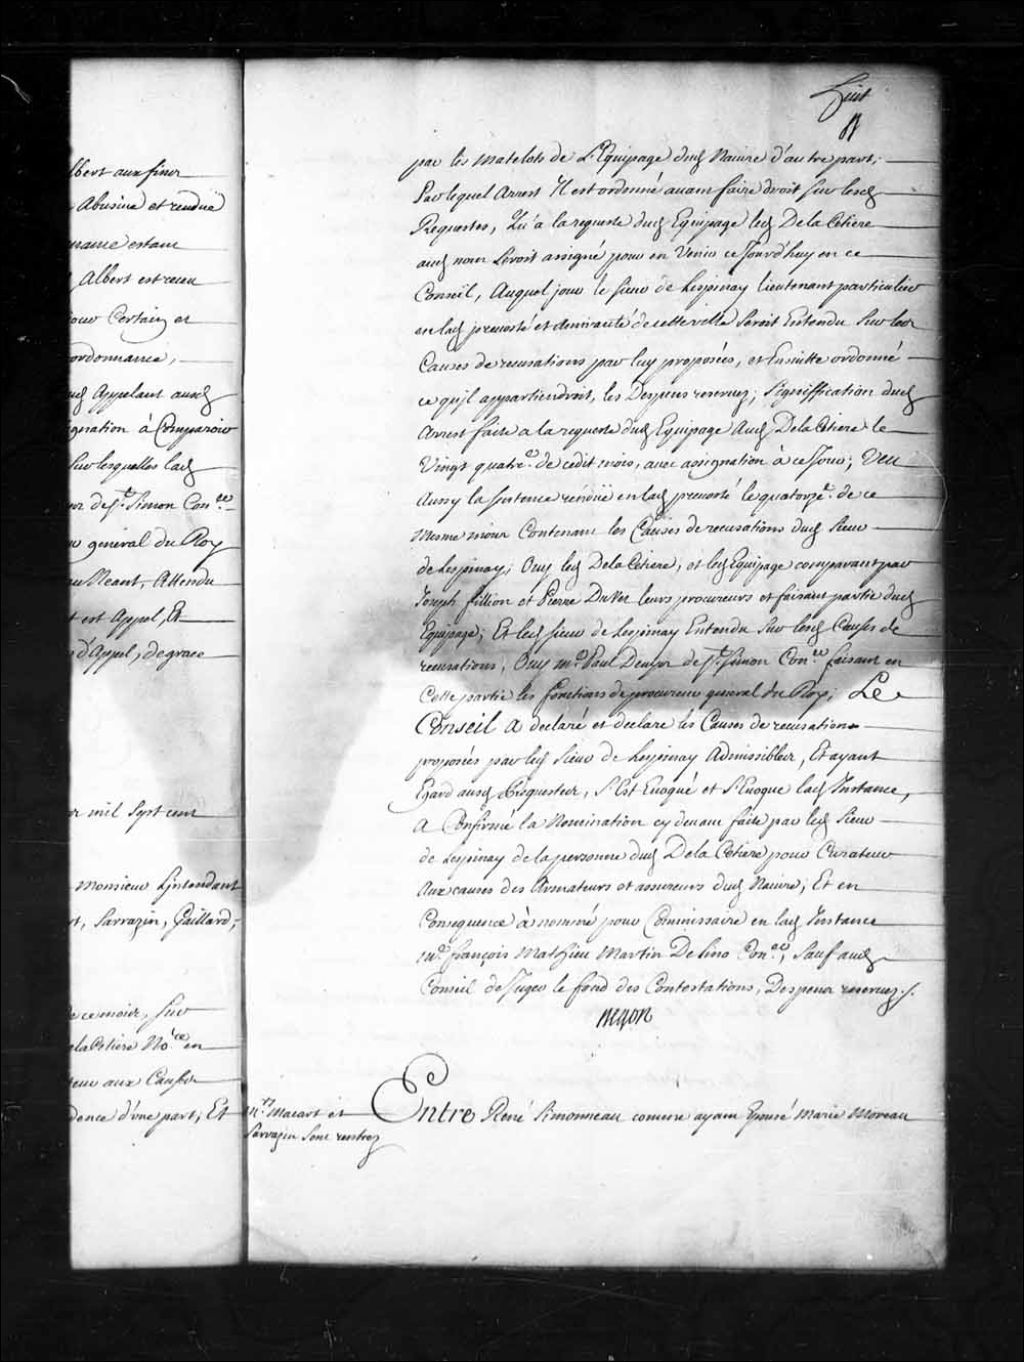 huit
lbert aux fins
Abusive et rendue
estant
Albert est receu
jour Certain et
ordonnance,
Appelant ausd
gnation à Comparoir
sur lesquelles lad
de St. Simon Con.er
general du Roy
Neant, Attendu
est Appel, Et
d'Appel, de grace
mil Sept cent
Monsieur L'jntendant
Sarrazin, Gaillard,
ce mois, sur
elaCetiere No.re en
teur aux Causes
dence d'une part, Et
par les matelots de L'Equipage dud Navire d'autre part,
Par lequel Arrest Il est ordonné avant faire droit sur lesd
Requestes, Qu'a la requeste dud Equipage led DelaCetiere
aud nom Seroit assigné pour en Venir ce Jourd'huy en ce
Conseil, Auquel jour le sieur de Lespinay lieutenant particulier
en lad prevosté et amirauté de cette ville Seroit Entendu Sur les
Causes de recusations par luy proposées, et Ensuitte ordonné
ce qu'jl appartiendroit, les Despens reservez; Signiffication dud
Arrest faite a la requeste dud Equipage Aud DelaCetiere le
Vingt quatre.e de cedit mois, avec assignation à ce Jour; Veu
Aussy la sentence rendüe en lad prevosté le quatorze.e de ce
mesme mois Contenant les Causes de recusations dud Sieur
de Lespinay; Ouy led DelaCetiere, et led Equipage comparant par
Joseph fillion et Pierre DuVer leurs procureurs et faisant partie dud
Equipage; Et led sieur de Lespinay Entendu Sur lesd Causes de
recusations, Ouy m.e Paul Denys de St. Simon Con.er faisant en
Cette partie les fonctions de procureur general du Roy; Le
Conseil a declaré et declare les Causes de recusations
proposées par led Sieur de Lespinay Admissibles, Et ayant
Egard ausd Requestes, S'Est Evoqué et S'Evoque lad Instance,
A Confirmé la Nomination cy devant faite par led Sieur
de Lespinay de la personne dud DelaCetiere pour Curateur
Aux causes des Armateurs et assureurs dud Navire; Et en
Consequence à nommé pour Commissaire en lad Instance
M.e françois Mathieu Martin De Lino Con.er, Sauf aud
Conseil de Juger le fond des Contestations, Despens reservez ./.
Begon
Mrs. Macart et
Sarrazin sont rentrez
Entre René Simonneau comme ayant Epousé Marie Moreau